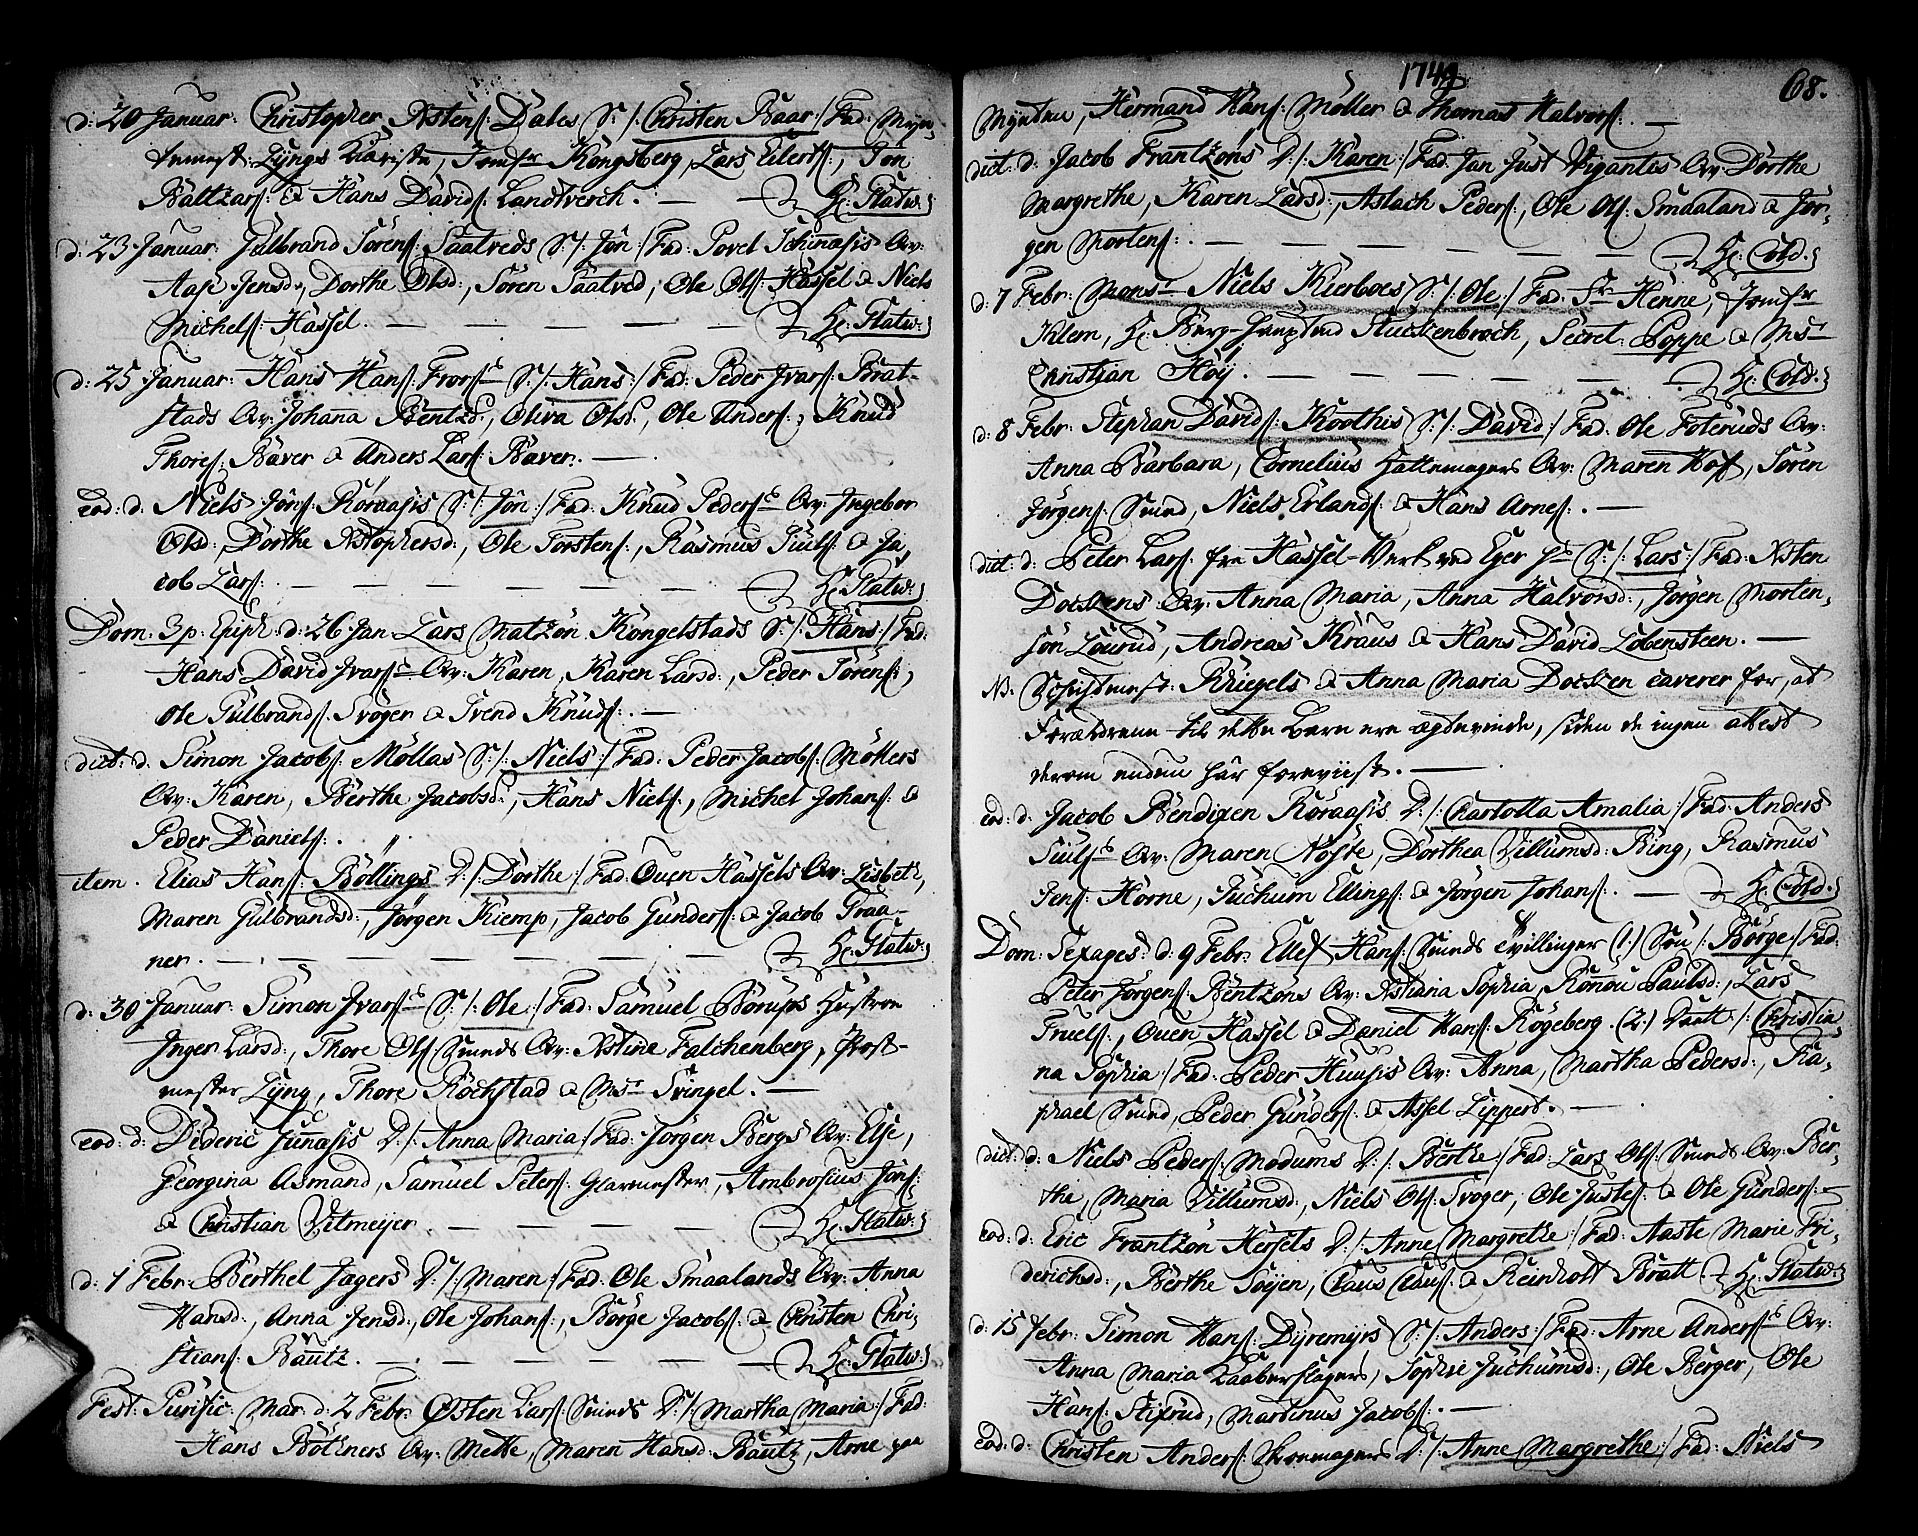 d: 20 Januar: Christopher Astens: Dales S: /: Christen Baar /: Fad: Myn-
temest: Lyngs Kiæriste, Jomfr Kongsberg, Lars Eilerts:, Jon
Baltzars: & Hans Davids: Landtverch. — — Hr: Statw:
d: 23 Januar: Gulbrand Sørens: Saatveds S: /: Jøn: / Fad: Povel Schinæsis Qv:
Aase Jensd:, Dorthe Olsd:, Sören Saatved, Ole Ols: Hassel & Niels
Michels: Hassel. — — — — — Hr: Statw:
d: 25 Januar: Hans Hans: Frors: S: /: Hans: / Fad: Peder Ivars: Brat-
stads Qv: Johana Bentzd:, Oliva Olsd:, Ole Anders:, Knud
Thores: Baver & Anders Lars: Baver. —
eod: d. Niels Jöns: Röraasis S: /: Jön: / Fad: Knud Peders: Qv: Ingebor
Olsd:, Dorthe Astophersd:, Ole Torstens:, Rasmus Juuls: & Ja,
cob Lars: — — — — — — Hr: Statw:
Dom: 3 p: Epiph: d: 26 Jan: Lars Matzön Kongelstads S: /: Hans: / Fad:
Hans David Ivars: Qv: Karen, Karen Larsd:, Peder Sörens:,
Ole Gulbrands: Svoger & Svend Knuds:. —
dict: d. Simon Jacobs: Möllas S: /: Niels: / Fad: Peder Jacobs: Möllers
Qv: Karen, Berthe Jacobsd:, Hans Niels:, Michel Johans: &
Peder Daniels:.
item. Elias Hans: Böllings D: /: Dorthe: / Fad: Ouen Hassels Qv: Lisbeth,
Maren Gulbrandsd:, Jørgen Kiemp, Jacob Gunders: & Jacob Graa-
ner. — — — — — — Hr: Statw:
d: 30 Januar: Simon Ivars: S: /: Ole: / Fad: Samuel Börups Hustroe
Inger Larsd:, Thore Ols: Sunds Qv: Astine Falchenberg, Post-
mester Lyng, Thore Rochstad & Msr Svingel. —
eod: d: Dideric Junasis D: /: Anna Maria: / Fad: Jørgen Bergs Qv: Else,
Georgina Asmand, Samuel Peters: Glarmester, Ambrosius Jöns:
& Christian Vitmeijer. — — — — — Hr: Statw:
d: 1 Febr: Berthel Jægers D: /: Maren: / Fad: Ole Smaalands Qv: Anna
Hansd:, Anna Jensd:, Ole Johans:, Börge Jacobs: & Christen Chri-
stians: Bautz. — — — — — Hr: Statw:
Fest: Purific: Mar: d: 2 Febr: Östen Lars: Sunds D: /: Martha Maria: / Fad:
Hans Böttners Qv: Mette, Maren Hansd: Bautz, Arne paa
1749 68.
Mynten, Hermand Hans: Möller & Thomas Halvors:. —
dict: d: Jacob Frantzöns D: /: Karen: / Fad: Jan Just Vigantes Qv: Dorthe
Margrethe, Karen Ladsd:, Aslach Peders:, Ole Ols: Smaaland & Jör-
gen Mortens: — — — — — — Hr: Cold.
d: 7 Febr: Monsr Niels Kierboes S: /: Ole: / Fad: Fr Henne, Jomfr
Klem, Hr: Berg-Hauptmd Stuckenbroch, Secret: Poppe & Msr
Christian Höij. — — — — — Hr: Cold.
d: 8 Febr: Stephan Davids: Koothis S: /: David: / Fad: Ole Foseruds Qv:
Anna Barbara, Cornelius Hattemagers Qv: Maren Hof, Sören
Jørgens: Sund, Niels Erlands: & Hans Arnes:. —
dict: d: Peter Lars: fra Hassel-Verk ved Eger S: /: Lars: / Fad: Asten
Dockens Qv: Anna Maria, Anna Halvorsd:, Jørgen Morten,
sön Lourud, Andreas Kraus & Hans David Lobensteen. —
NB. Schichtmest: Kriegels & Anna Maria Docken caverer for, at
Forældrene til dette Barn ere ægteviede, siden de ingen attest
derom enden har foreviist. —
eod: d: Jacob Bendixen Röraasis D: /: Charlotta Amalia: / Fad: Anders
Juuls: Qv: Maren Nöste, Dorthea Villumsd: Ring, Rasmus
Jens: Horne, Juchum Ellings: & Jørgen Johans:. — Hr: Cold.
Dom: Sexages: d: 9 Febr: Ellef Hans: Sunds tvillinger (1.) Sön /: Börge: / Fad:
Peter Jørgens: Bentzöns Qv: Astiana Sophia, Rönou Paulsd:, Lars
Truels:, Ouen Hassel & Daniel Hans: Kogeberg. (2.) Datt: /: Christia-
na Sophia: / Fad: Peder Huusis Qv: Anna, Martha Pedersd:, Ra,
phael Sund, Peder Gunders: & Assel Lippert. —
dict: d: Niels Peders: Modums D: /: Berthe: / Fad: Lars Ols: Sunds Qv: Ber-
the, Maria Villumsd:, Niels Ols: Svoger, Ole Justes: & Ole Gunders: —
eod: d: Eric Frantzön Hersels D: /: Anne Margrethe: / Fad: Aaste Marie Fri-
derichsd:, Berthe Soijen, Claus Claus: & Reinholt Bratt. Hr: Statw:
d: 15 Febr: Simon Hans: Dyremyrs S: /: Anders: / Fad: Arne Anders: Qv:
Anna Maria Kaaberslagers, Sophie Juchumsd:, Ole Berger, Ole
Hans: Stixrud, Martinus Jacobs:. —
eod: d: Christen Anders: Skoemagers D: /: Anne Margrethe: / Fad: Niels